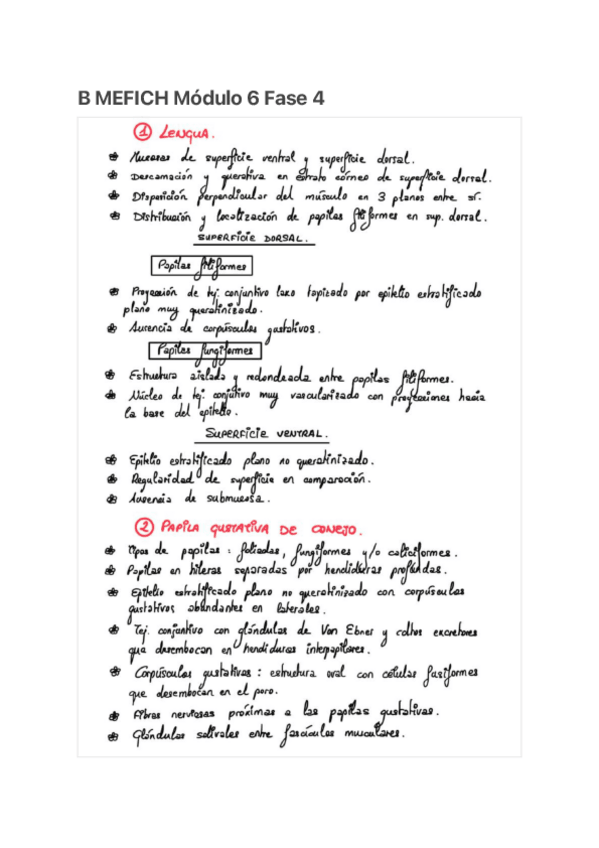 B MEFICH Módulo 6 Fase 4
1 LENGUA.
Mucosas de superficie ventral y superficie dorsal.
Descamación y queratina en estrato córneo de superficie dorsal.
Disposición perpendicular del músculo en 3 planos entre sí.
Distribución y localización de papilas filiformes en sup. dorsal.
SUPERFICIE DORSAL.
Papilas filiformes
Proyección de tej. conjuntivo laxo tapizado por epitelio estratificado
plano muy queratinizado.
Ausencia de corpúsculos gustativos.
Papilas fungiformes
Estructura aislada y redondeada entre papilas filiformes.
Núcleo de tej. conjutivo muy vascularizado con proyecciones hacia
la base del epitelio.
SUPERFICIE VENTRAL.
Epitelio estratificado plano no queratinizado.
Regularidad de superficie en comparación.
Ausencia de submucosa.
2 PAPILA GUSTATIVA DE CONEJO.
Tipos de papilas: foliadas, fungiformes y/o caliciformes.
Papilas en hileras separadas por hendiduras profundas.
Epitelio estratificado plano no queratinizado con corpúsculos
gustativos abundantes en laterales.
Tej. conjuntivo con glándulas de Von Ebner y cdtos excretores
que desembocan en hendiduras interpapilares.
Corpúsculos gustativos: estructura oval con células fusiformes
que desembocan en el poro.
Fibras nerviosas próximas a las papilas gustativas.
Glándulas salivales entre fascículos musculares.